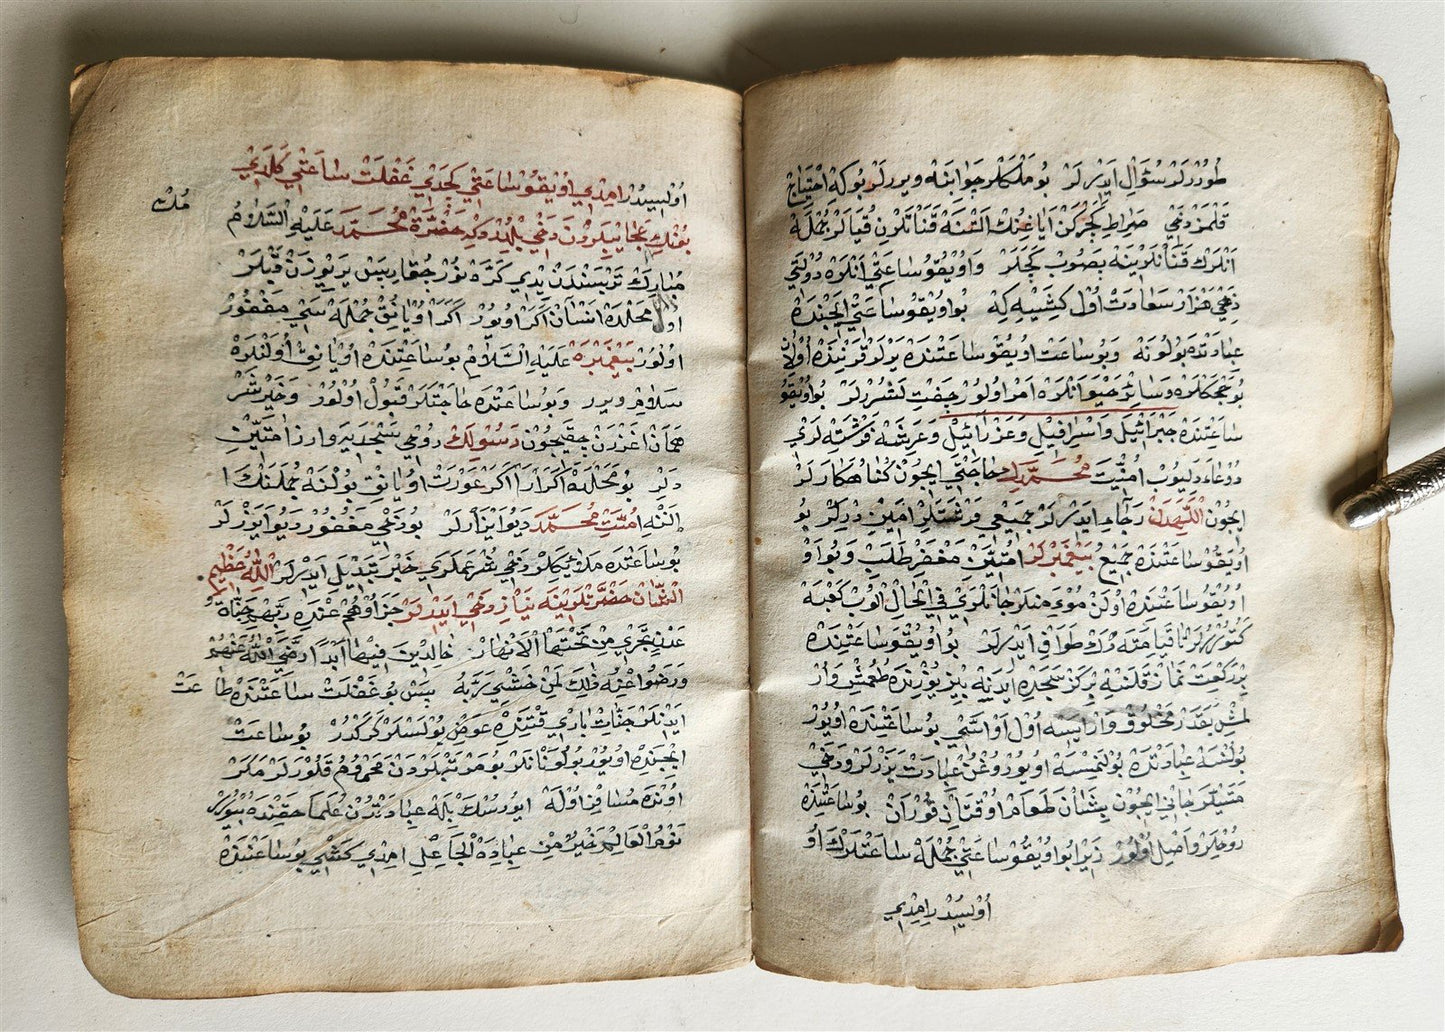 طوررلر سؤال ايدرلر بو ملكلر جوابنه ويررلر بو كه احتياج
قلمز دخي صراط كچركن اياغنك التنه قناتلرن قويالر جمله
انلرك قناتلرينه بصوب كچلر و اويقو ساعتي انلره دولتي
دخي هزار سعادت اول كشييه كه بو اويقو ساعتي ايچنده
عبادتده بولونه و بو ساعت اويقو ساعتنده يرلر قرنده اولان
بوجكلره و سائر حيوانلره امر اولور جفت لشورلر بو اويقو
ساعتنده جبرائيل و اسرافيل و عزرائيل و عرشه فرشته لري
دوعا دليوب امت محمدك حاجتي ايچون كناهكارلر
ايچون اللهدن رجا ايدرلر جميعي فرشتلر امين ديرلر بو
اويقو ساعتنده جميع پيغمبرلر امتنين مغفر طلب و بو او
اويقو ساعتنده اولن مؤمنلر جانلري في الحال الوب كعبه
كتوررلر تا قيامته دك طواف ايدرلر بو اويقو ساعتنده
بر ركعت نماز قلنه بركز سجده ايدنه يير يوزنده طوغمش وار
لمش نقدر مخلوق وار ايسه اول او استمي بو ساعتنده اويور
بولنسه عبادتده بولنميسه اويورغن عبادت يزرلر و دخي
متيلر جاني ايچون پشان طعام اوقنان قوران بو ساعتنده
روحلر واصل اولور زيرا بو اويقو ساعتي جمله ساعتلرك او
اولسيدر امدي
اولسيدر امدي اويقو ساعتي كچدي غفلت ساعتي كلدي
بونك عجايبلردن دخي بلهدوكه حضرة محمد عليه السلام
مبارك تربسندن يدي كره نور چقار يتمش بر يوزن قبلر
او محلده انسان اكر اويور اكر اويانق جمله سي مغفور
اولور پيغمبره عليه السلام بو ساعتنده اويانق اولنلره
سلام ويرر و بو ساعتنده حاجتلر قبول اولور و خير شر
همان اغزدن چقيجون رسولك روحي سجديه وارر امتين
دلر بو محلده اكر ار اكر عورت اويانق بولنه جملنك ا
لنه امت محمد ديو يازرلر بو دخي مغفور ديو يازرلر
بو ساعتده ملائكلر دخي شر عملري خير تبديل ايدرلر الله عظيم
الشان حضرتلرينه نياز دخي ايدرلر جزاؤهم عند ربهم جنات
عدن تجري من تحتها الانهار خالدين فيها ابدا رضي الله عنهم
و رضوا عنه ذلك لمن خشي ربه پس بو غفلت ساعتنده طاعت
ايدنلر جنات باري قتنده عوض بولسلر كركدر بو ساعت
ايچنده اويور بولونانلر بو مرتبهلردن محروم قلورلر مكر
اونده مسافر اوله ايورسك بله عباد تدر زن علما حقنده بيورر
نوم العالم خير من عبادة الجاهل امدي كشي بو ساعتنده